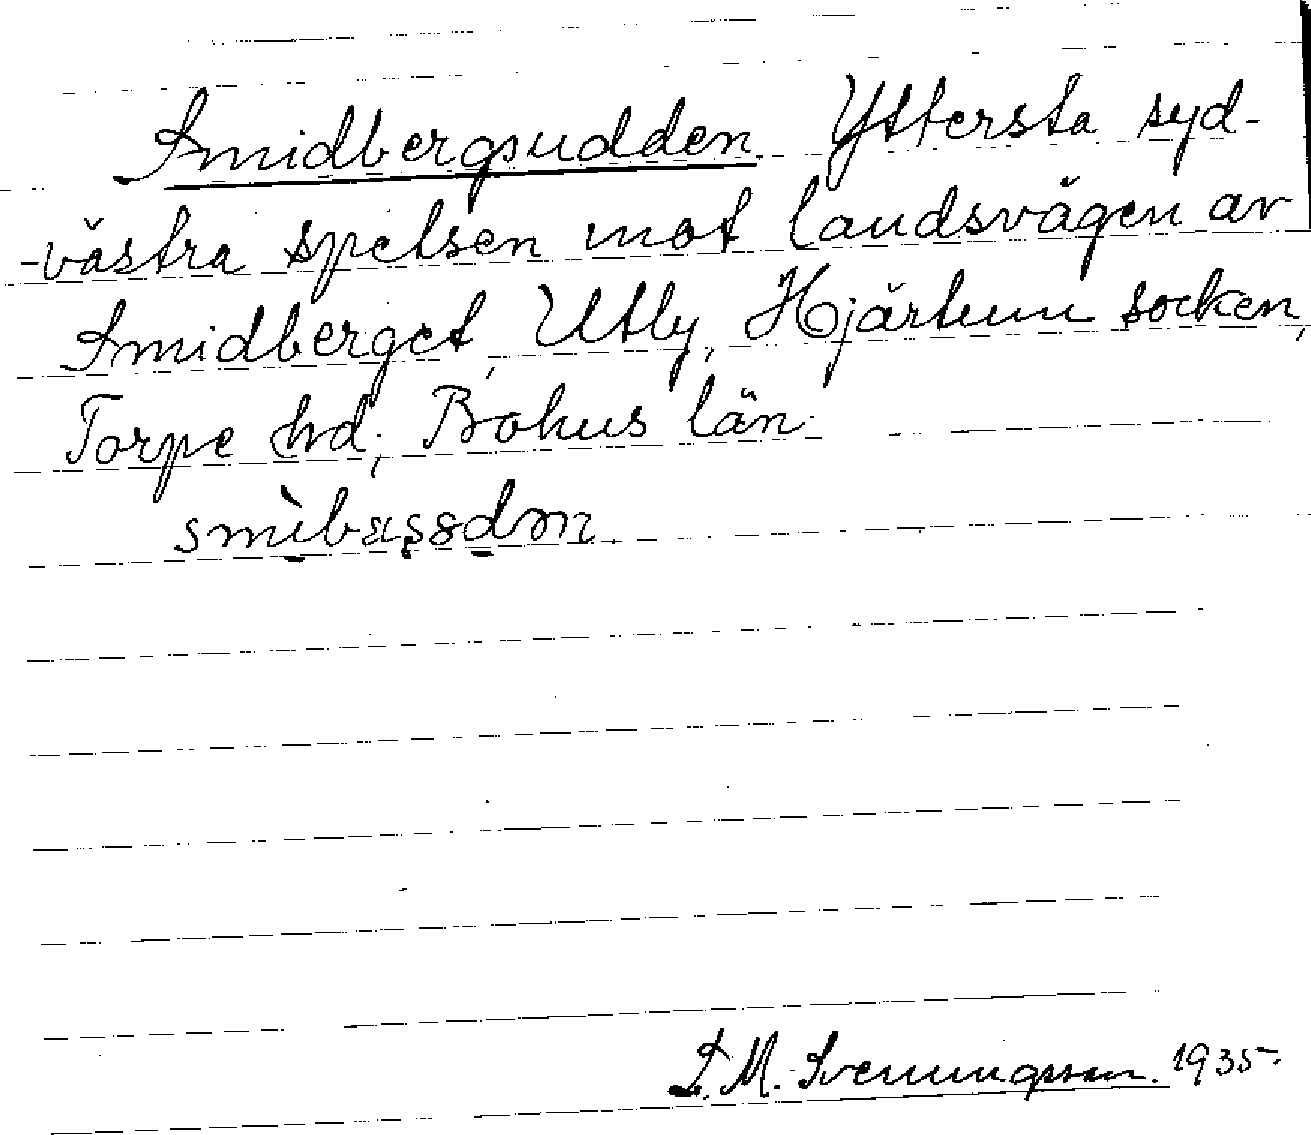 Smidbergsudden Yttersta syd-
-västra spetsen mot landsvägen av
Smidberget, Utby, Hjärtum socken,
Torpe hd, Bohus län.
S. M. Svenningsson. 1935.